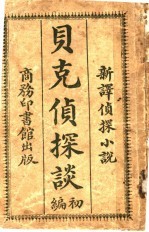 新譯偵探小說
貝克偵探談
初編
商務印書館出版